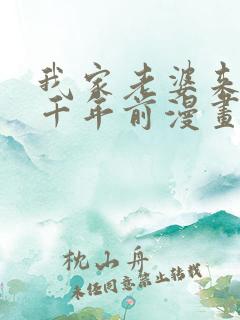 我家老婆来
千年前漫畫
枕山舟
未经同意禁止转载